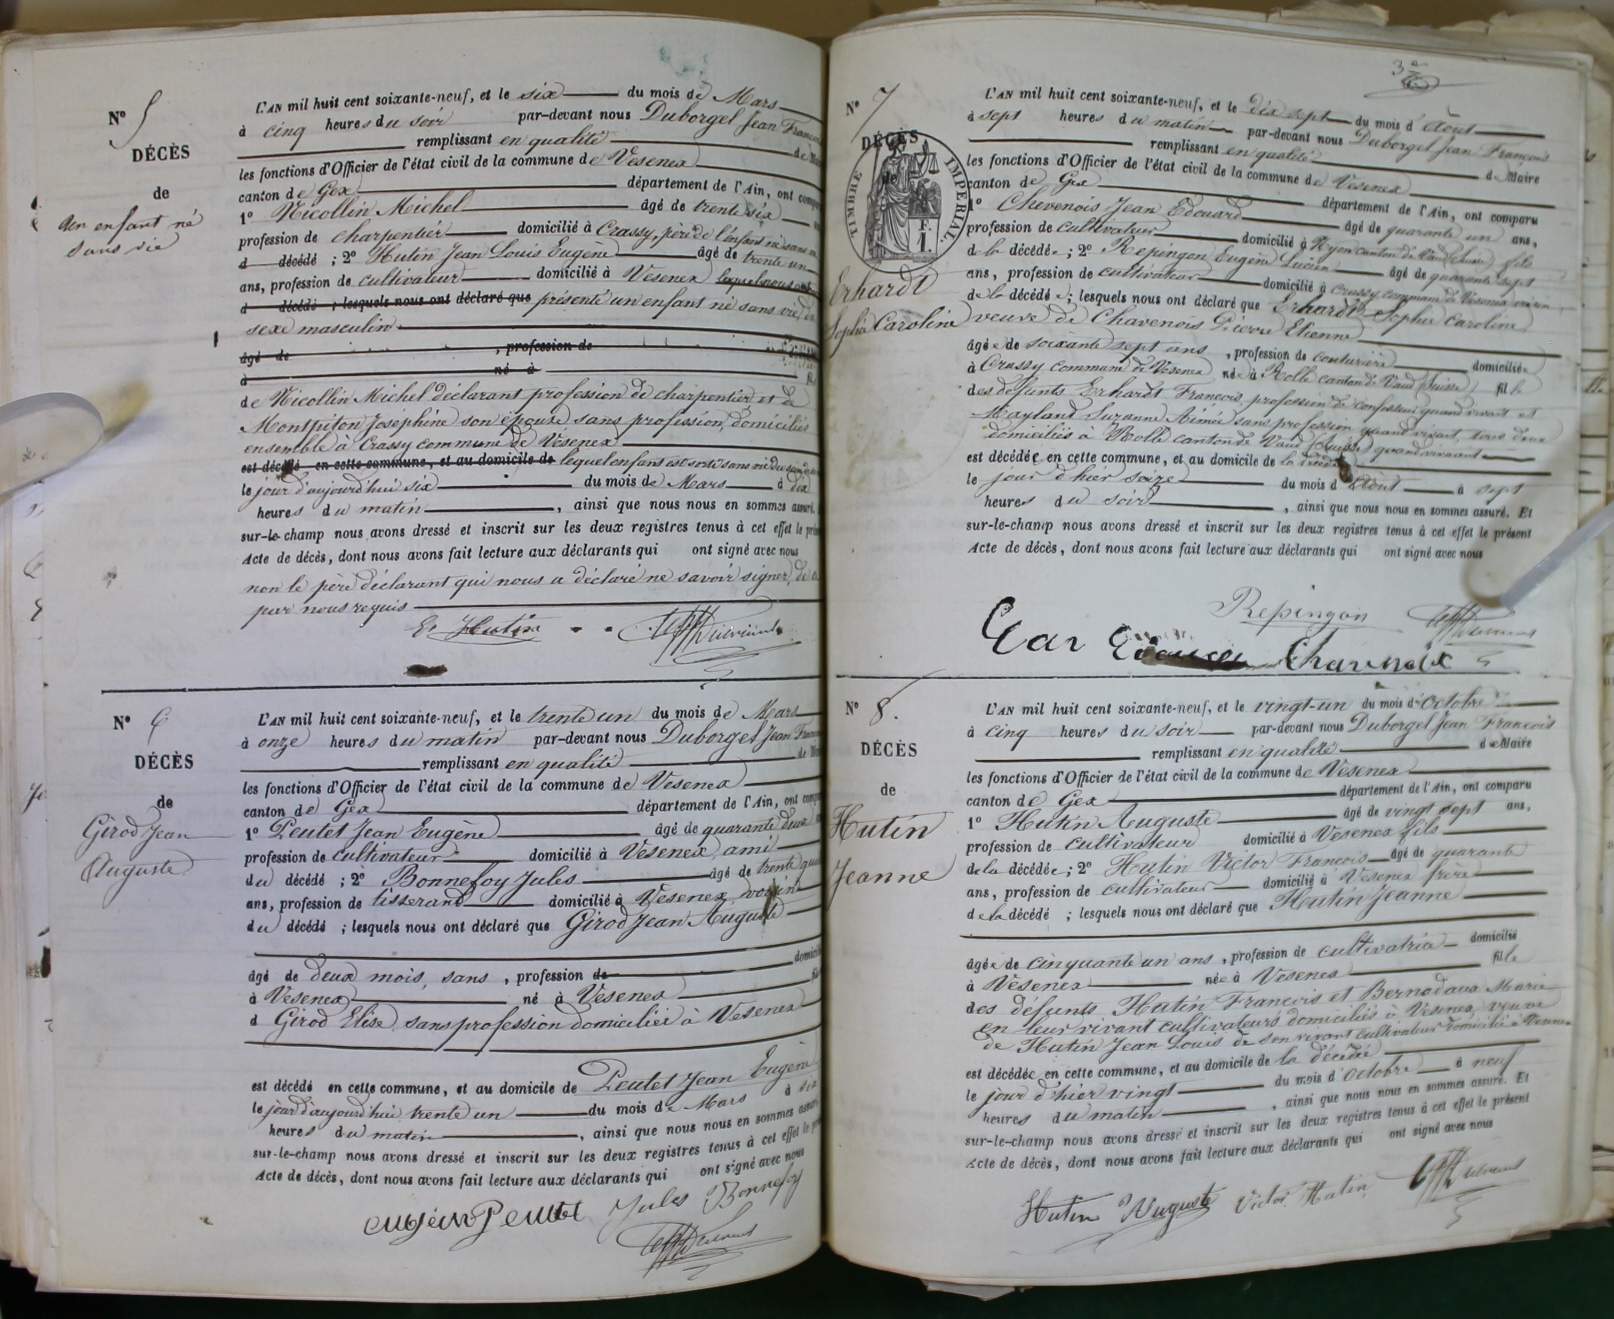 N° 5
DÉCÈS
de
un enfant né
sans vie
L'AN mil huit cent soixante-neuf, et le six du mois de Mars
à cinq heures du soir par-devant nous Duborgel Jean François
remplissant en qualité de
les fonctions d'Officier de l'état civil de la commune de Vesenex
canton de Gex département de l'Ain, ont comp
1° Nicollin Michel âgé de trente six
profession de charpentier domicilié à Crassy, père de l'enfant né sans
d décédé ; 2° Hutin Jean Louis Eugène âgé de trente un
ans, profession de cultivateur domicilié à Vesenex lesquels nous ont
d décédé ; lesquels nous ont déclaré que présenté un enfant né sans vie, du
sexe masculin
âgé de , profession de
à né à
de Nicollin Michel déclarant profession de charpentier et de
Montpiton Joséphine son épouse sans profession, domiciliés
ensemble à Crassy commune de Vésenex
est décédé en cette commune, et au domicile de lequel enfant est sorti sans vie du sein de
le jour d'aujourd'hui six du mois de Mars à dix
heures du matin , ainsi que nous nous en sommes assuré.
sur-le-champ nous avons dressé et inscrit sur les deux registres tenus à cet effet le
Acte de décès, dont nous avons fait lecture aux déclarants qui ont signé avec nous
non le père déclarant qui nous a déclaré ne savoir signer, de ce
par nous requis
E Hutin
N° 6
DÉCÈS
de
Girod Jean
Auguste
L'AN mil huit cent soixante-neuf, et le trente un du mois de Mars
à onze heures du matin par-devant nous Duborgel Jean
remplissant en qualité
les fonctions d'Officier de l'état civil de la commune de Vesenex
canton de Gex département de l'Ain, ont
1° Peutet Jean Eugène âgé de quarante deux
profession de cultivateur domicilié à Vesenex, ami
du décédé ; 2° Bonnefoy Jules âgé de trente
ans, profession de tisserand domicilié à Vesenex, voisin
du décédé ; lesquels nous ont déclaré que Girod Jean Auguste
âgé de deux mois, sans , profession de
à Vesenex né à Vesenex
d Girod Elise, sans profession domiciliée à Vesenex
est décédé en cette commune, et au domicile de Peutet Jean Eugène
le jour d'aujourd'hui trente un du mois de Mars à six
heures du matin , ainsi que nous nous en sommes assuré
sur-le-champ nous avons dressé et inscrit sur les deux registres tenus à cet effet le
Acte de décès, dont nous avons fait lecture aux déclarants qui ont signé avec nous
eugèine Peutet Jules Bonnefoy
3e
N° 7
DÉCÈS
de
TIMBRE IMPÉRIAL
Erhardt
Sophie Caroline
L'AN mil huit cent soixante-neuf, et le dix sept du mois d'Août
à sept heures du matin par-devant nous Duborgel Jean François
remplissant en qualité de Maire
les fonctions d'Officier de l'état civil de la commune de Vesenex
canton de Gex département de l'Ain, ont comparu
1° Chevenois Jean Edouard âgé de quarante un ans,
profession de cultivateur domicilié à Nyon canton de Vaud Suisse fils
de la décédée ; 2° Repingon Eugène Lucien âgé de quarante sept
ans, profession de cultivateur domicilié à Crassy commune de Vésenex voisin
de la décédée ; lesquels nous ont déclaré que Erhardt Sophie Caroline
veuve de Chavenois Pierre Etienne
âgée de soixante sept ans , profession de couturière domiciliée
à Crassy commune de Vesenex née à Rolle canton de Vaud (Suisse) fille
des défunts Erhardt François, profession de confiseur quand vivant et
Mayland Suzanne Aimée sans profession quand vivait, tous deux
domiciliés à Rolle canton de Vaud (Suisse) quand vivaient
est décédée en cette commune, et au domicile de la
le jour d'hier seize du mois d'Août à sept
heures du soir , ainsi que nous nous en sommes assuré. Et
sur-le-champ nous avons dressé et inscrit sur les deux registres tenus à cet effet le présent
Acte de décès, dont nous avons fait lecture aux déclarants qui ont signé avec nous
Repingon
N° 8.
DÉCÈS
de
Hutin
Jeanne
L'AN mil huit cent soixante-neuf, et le vingt-un du mois d'Octobre
à cinq heures du soir par-devant nous Duborgel Jean François
remplissant en qualité de Maire
les fonctions d'Officier de l'état civil de la commune de Vesenex
canton de Gex département de l'Ain, ont comparu
1° Hutin Auguste âgé de vingt sept ans,
profession de cultivateur domicilié à Vesenex fils
de la décédée ; 2° Hutin Victor François âgé de quarante
ans, profession de cultivateur domicilié à Vesenex frère
de la décédé ; lesquels nous ont déclaré que Hutin Jeanne
âgée de cinquante un ans , profession de cultivatrice domicilié
à Vesenex née à Vesenex fille
des défunts Hutin François et Bernadaux Marie
en leur vivant cultivateurs domiciliés à Vesenex, veuve
de Hutin Jean Louis de son vivant cultivateur domicilié à Vesenex
est décédée en cette commune, et au domicile de la décédée
le jour d'hier vingt du mois d'Octobre à neuf
heures du matin , ainsi que nous nous en sommes assuré. Et
sur-le-champ nous avons dressé et inscrit sur les deux registres tenus à cet effet le présent
Acte de décès, dont nous avons fait lecture aux déclarants qui ont signé avec nous
Hutin Auguste Victor Hutin